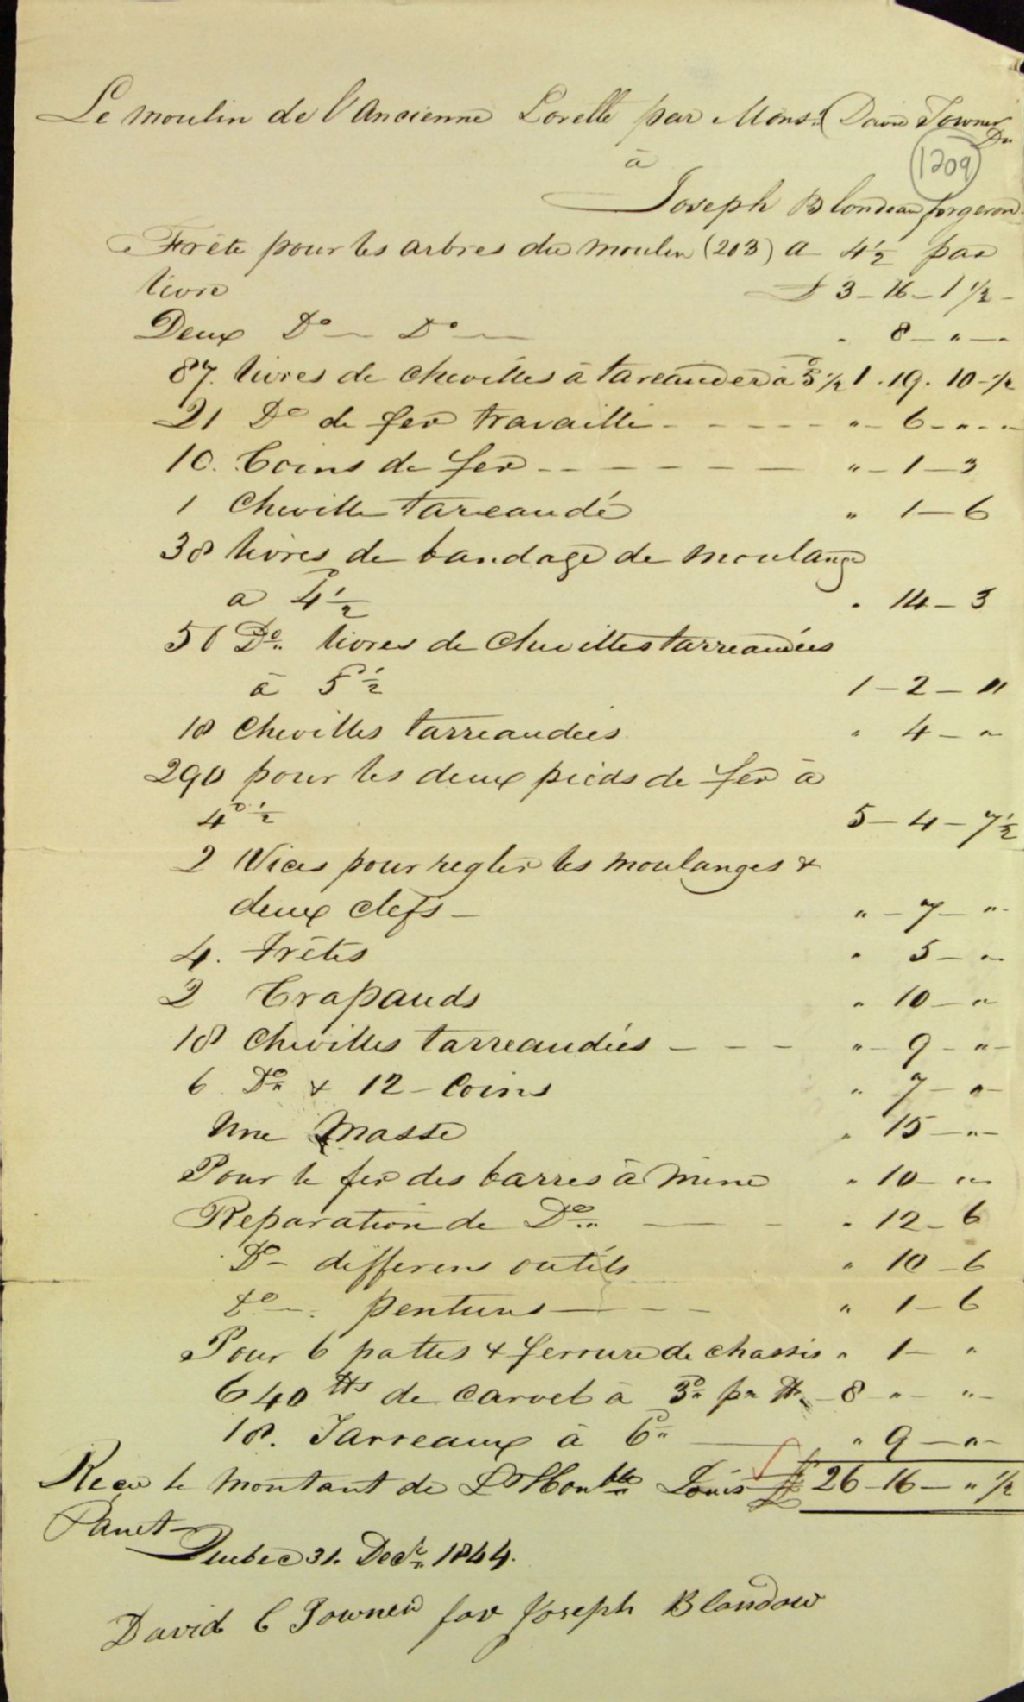 Le moulin de l'Ancienne Lorette par Mons.r David Towner
Dr
1209
à
Joseph Blondeau forgeron
Frete pour les arbres du moulin (203) a 4½ par
livre £ 3 - 16 - 1½ -
Deux Do — Do — " 8 - " -
87. livres de chevilles à tareauder à 5½ 1 . 19 . 10 - ½
21 Do de fer travaillé - - - - - " - 6 - " - -
10. Coins de fer - - - - - " - 1 - 3
1 Cheville tareaudé " 1 - 6
38 livres de bandage de moulange
a 4½ " 14 - 3
51 Do livres de chevilles tarreaudées
à 5½ 1 - 2 - "
18 chevilles tarreaudees " 4 - "
290 pour les deux pieds de fer à
4½ 5 - 4 - 7½
2 Vices pour regler les moulanges &
deux clefs - " - 7 - "
4. Frêtes " 5 - "
2 Crapauds " 10 - "
18 chevilles tarreaudées - - - " - 9 - "
6 Do & 12 - Coins " 7 - "
Une Masse " 15 - "
Pour le fer des barres à mine " 10 - "
Reparation de Do — - " 12 - 6
Do - differens outils " 10 - 6
Do - pentures - - - " 1 - 6
Pour 6 pattes & ferrure de chassis " 1 - "
640 tts de carvel à 3d pr tt - 8 - " - "
18. Tarreaux à 6d — " 9 - "
Reçu le montant de L'Honble Louis £ 26 - 16 - " ½
Panet -
Quebec 31. Decr 1844.
David C Towner for Joseph Blondow